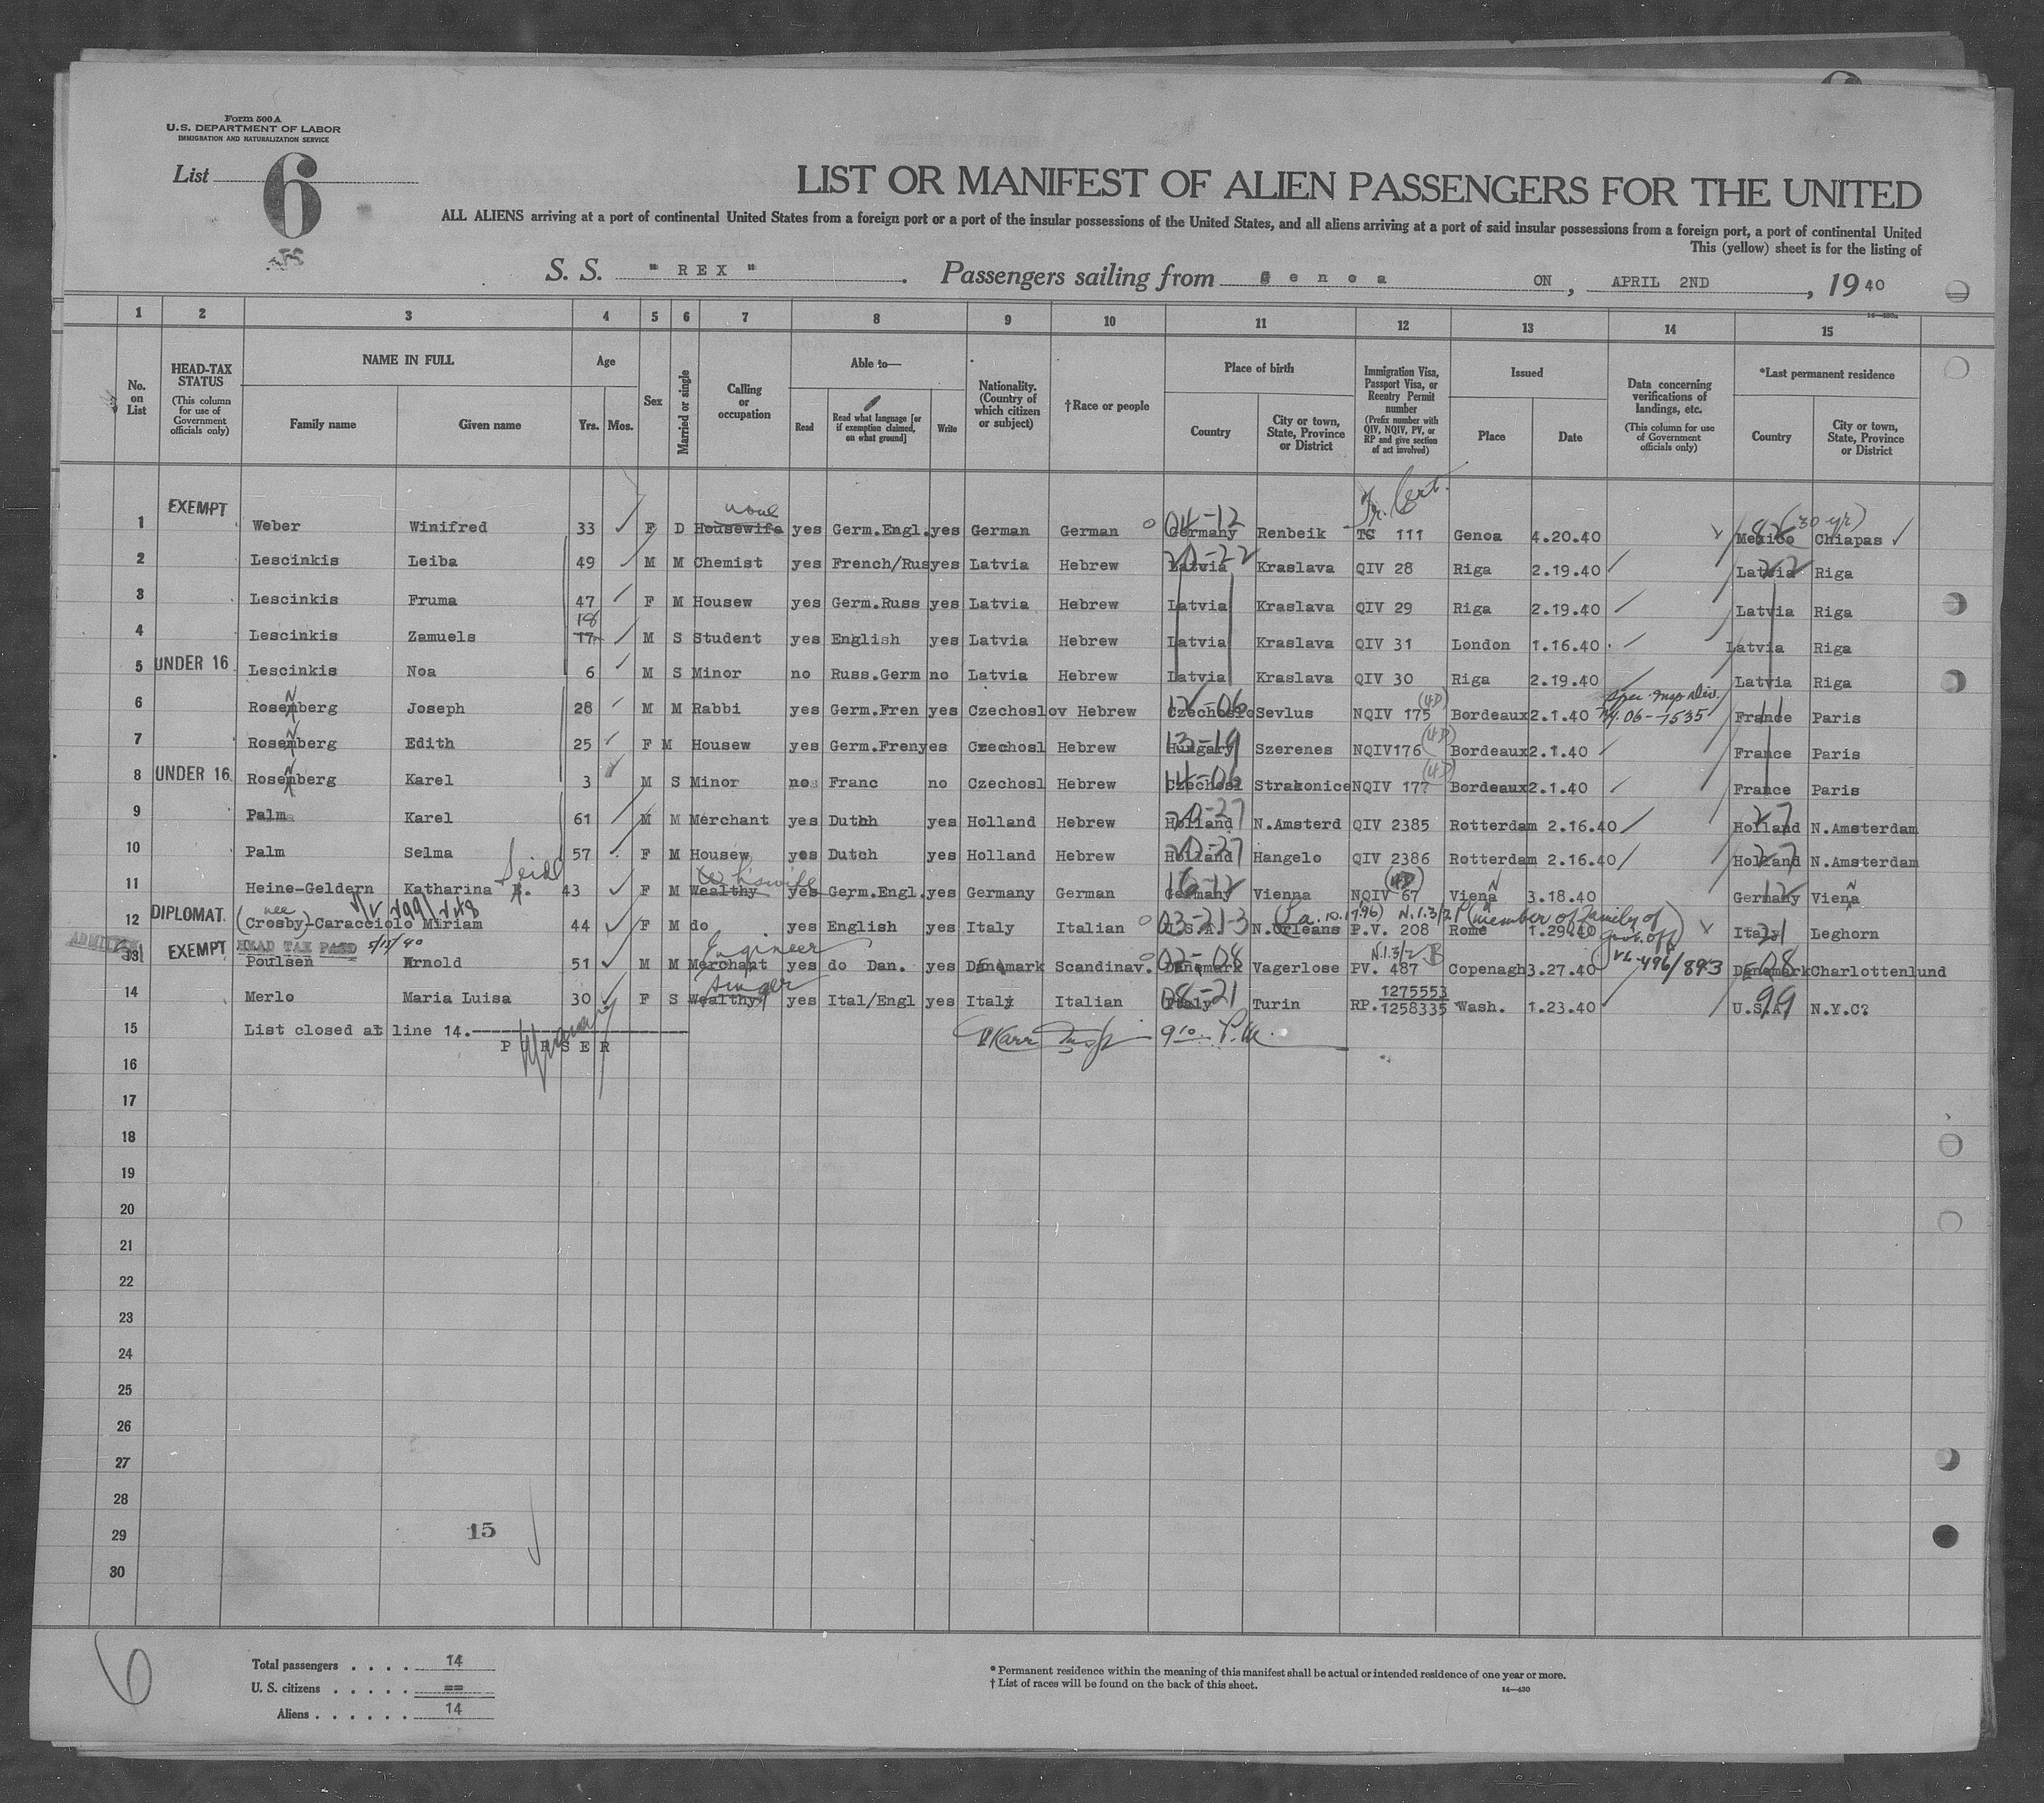 Form 500 A
U.S. DEPARTMENT OF LABOR
IMMIGRATION AND NATURALIZATION SERVICE
List 6
LIST OR MANIFEST OF ALIEN PASSENGERS FOR THE UNITED
ALL ALIENS arriving at a port of continental United States from a foreign port or a port of the insular possessions of the United States, and all aliens arriving at a port of said insular possessions from a foreign port, a port of continental United
This (yellow) sheet is for the listing of
S. S. " REX " . Passengers sailing from Genoa ON , APRIL 2ND , 19 40
1 2 3 4 5 6 7 8 9 10 11 12 13 14 15
No. on List
HEAD-TAX STATUS (This column for use of Government officials only)
NAME IN FULL
Family name Given name
Age
Yrs. Mos.
Sex
Married or single
Calling or occupation
Able to—
Read Read what language [or if exemption claimed, on what ground] Write
Nationality. (Country of which citizen or subject)
†Race or people
Place of birth
Country City or town, State, Province or District
Immigration Visa, Passport Visa, or Reentry Permit number (Prefix number with QIV, NQIV, PV, or RP and give section of act involved)
Issued
Place Date
Data concerning verifications of landings, etc. (This column for use of Government officials only)
*Last permanent residence
Country City or town, State, Province or District
Tr. Cert.
1 EXEMPT Weber Winifred 33 F D Housewife none yes Germ.Engl. yes German German Germany 04-12 Renbeik TC 111 Genoa 4.20.40 Mexico 82 (30 yr) Chiapas
2 Lescinkis Leiba 49 M M Chemist yes French/Rus yes Latvia Hebrew Latvia 20-22 Kraslava QIV 28 Riga 2.19.40 Latvia 22 Riga
3 Lescinkis Fruma 47 F M Housew yes Germ.Russ yes Latvia Hebrew Latvia Kraslava QIV 29 Riga 2.19.40 Latvia Riga
4 Lescinkis Zamuels 17 18 M S Student yes English yes Latvia Hebrew Latvia Kraslava QIV 31 London 1.16.40 Latvia Riga
5 UNDER 16 Lescinkis Noa 6 M S Minor no Russ.Germ no Latvia Hebrew Latvia Kraslava QIV 30 Riga 2.19.40 Latvia Riga
6 Rosemberg N Joseph 28 M M Rabbi yes Germ.Fren yes Czechoslov Hebrew Czechoslo 12-06 Sevlus NQIV 175 (4D) Bordeaux 2.1.40 06-1535 France 11 Paris
7 Rosemberg N Edith 25 F M Housew yes Germ.Fren yes Czechosl Hebrew Hungary 13-19 Szerenes NQIV176 (4D) Bordeaux 2.1.40 France Paris
8 UNDER 16 Rosemberg N Karel 3 M S Minor no Franc no Czechosl Hebrew Czechosl 14-06 Strakonice NQIV 177 (4D) Bordeaux 2.1.40 France Paris
9 Palm Karel 61 M M Merchant yes Dutch yes Holland Hebrew Holland 20-27 N.Amsterd QIV 2385 Rotterdam 2.16.40 Holland 27 N.Amsterdam
10 Palm Selma 57 F M Housew yes Dutch yes Holland Hebrew Holland 20-27 Hangelo QIV 2386 Rotterdam 2.16.40 Holland 27 N.Amsterdam
11 Heine-Geldern Katharina Seidl 43 F M Wealthy H'swife yes Germ.Engl. yes Germany German Germany 16-12 Vienna NQIV 67 (4D) Viena N 3.18.40 Germany 12 Viena N
12 DIPLOMAT. (nee Crosby)-Caracciolo Miriam 44 F M do yes English yes Italy Italian U.S.A. 03-21-3 N.Orleans (La. P.V. 208 N.1.3/21 Rome 1.29.40 (member of family of Gov't. off.) Italy 21 Leghorn
13 ADMITTED EXEMPT HEAD TAX PAID 5/15/40 Poulsen Arnold 51 M M Merchant Engineer yes do Dan. yes Denmark Scandinav. Danemark 02-08 Vagerlose PV. 487 N.1.3/2 B Copenagh 3.27.40 VL-496/893 Denmark 08 Charlottenlund
14 Merlo Maria Luisa 30 F S Wealthy Singer yes Ital/Engl yes Italy Italian Italy 08-21 Turin RP. 1275553 1258335 Wash. 1.23.40 U.S.A. 99 N.Y.C?
15 List closed at line 14.
PURSER
Karr Insp 9 10 P.M.
16
17
18
19
20
21
22
23
24
25
26
27
28
29
30
15
6
Total passengers . . . . 14
U. S. citizens . . . . . ==
Aliens . . . . . . 14
* Permanent residence within the meaning of this manifest shall be actual or intended residence of one year or more.
† List of races will be found on the back of this sheet.
14—430